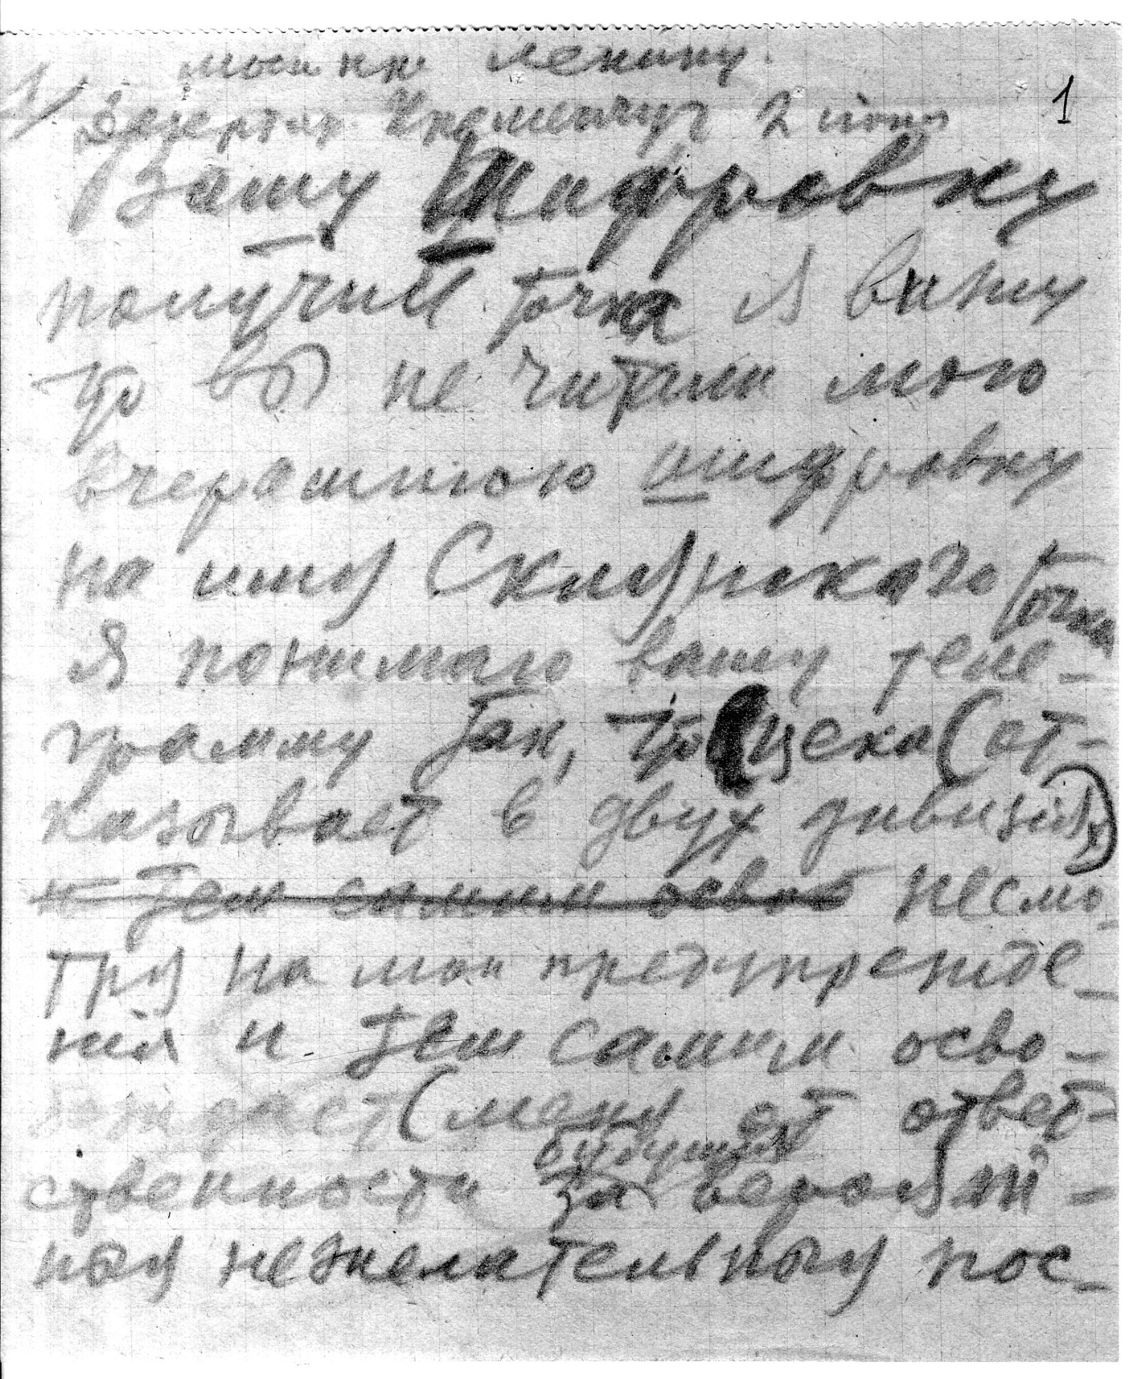 Москва Ленину.
1) Кременчуг 2 июня
1
Вашу шифровку
получил точка Я вижу
что вы не читали мою
вчерашнюю шифровку
на имя Склянского точка
Я понимаю вашу теле-
грамму так, что Цека (от-
казывает в двух дивизиях)
и тем самим освоб несмо-
тря на мои предупрежде-
ния и тем самим осво-
бождает (меня от ответ-
ственности за
будущия
вероят-
ныя нежелательныя пос-